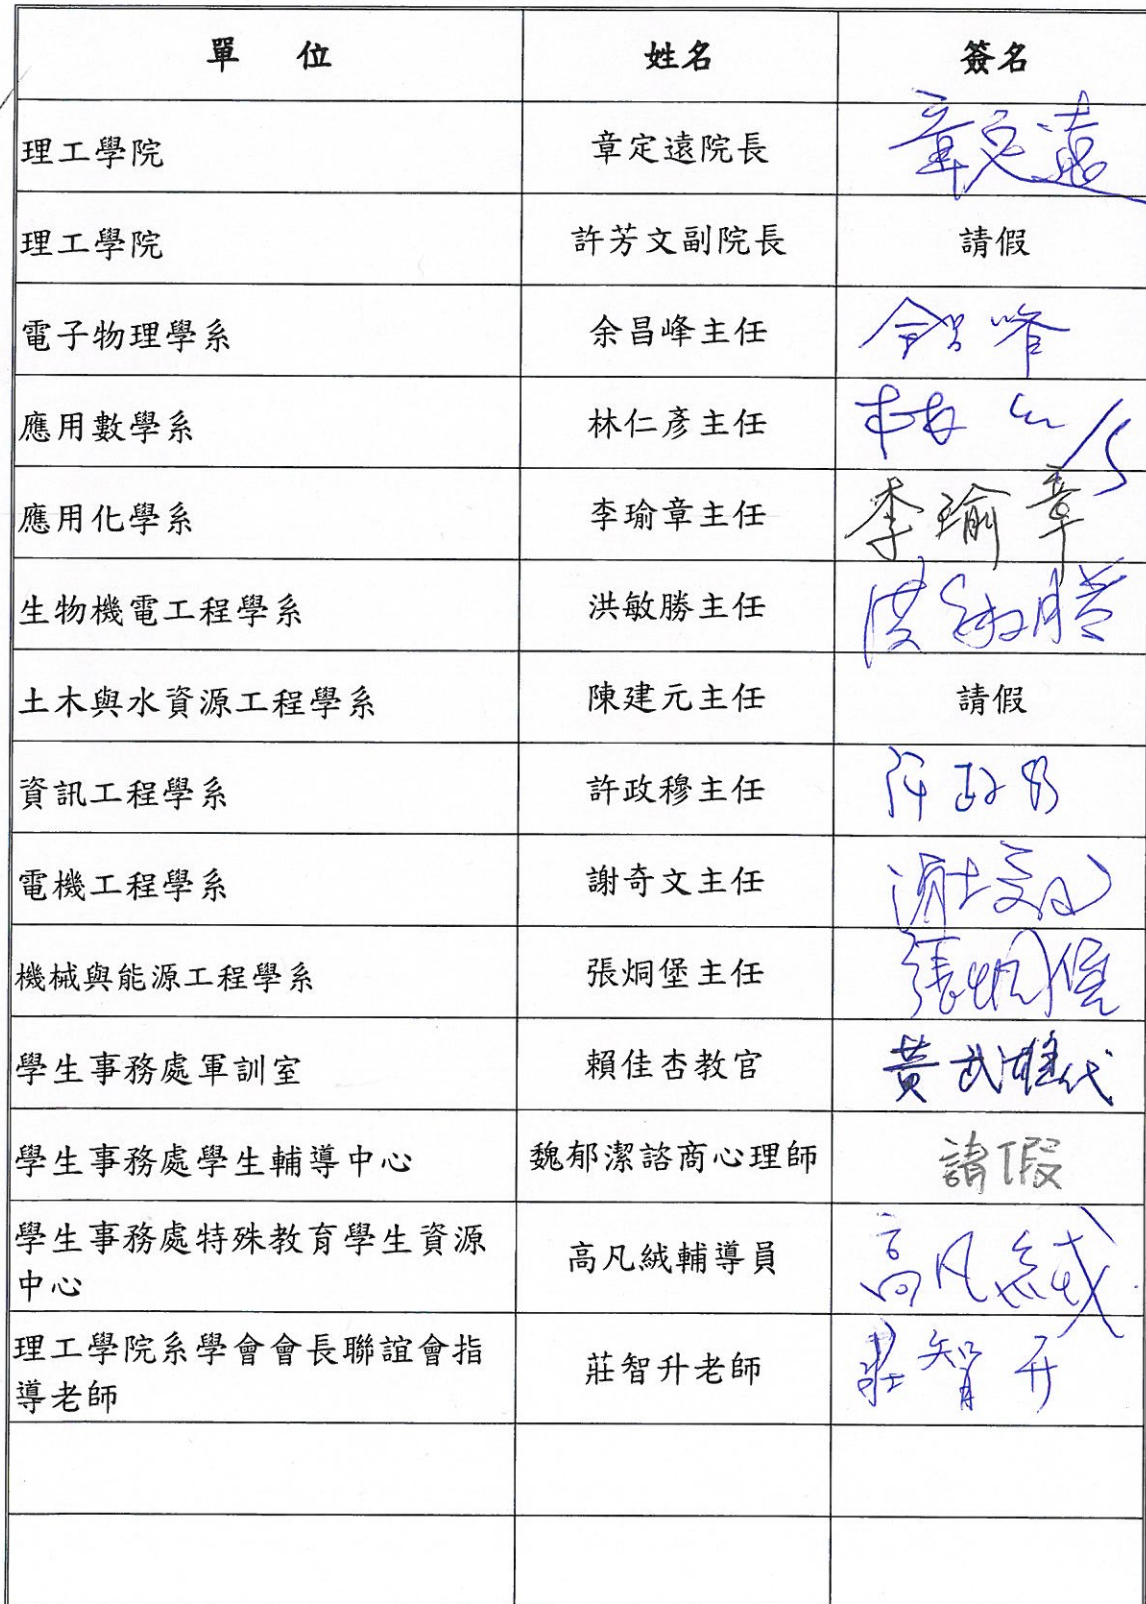 單 位 姓名 簽名
理工學院 章定遠院長 章定遠
理工學院 許芳文副院長 請假
電子物理學系 余昌峰主任 余昌峰
應用數學系 林仁彥主任 林仁彥
應用化學系 李瑜章主任 李瑜章
生物機電工程學系 洪敏勝主任 洪敏勝
土木與水資源工程學系 陳建元主任 請假
資訊工程學系 許政穆主任 許政穆
電機工程學系 謝奇文主任 謝奇文
機械與能源工程學系 張烔堡主任 張烔堡
學生事務處軍訓室 賴佳杏教官 黃武雄代
學生事務處學生輔導中心 魏郁潔諮商心理師 請假
學生事務處特殊教育學生資源
中心 高凡絨輔導員 高凡絨
理工學院系學會會長聯誼會指
導老師 莊智升老師 莊智升